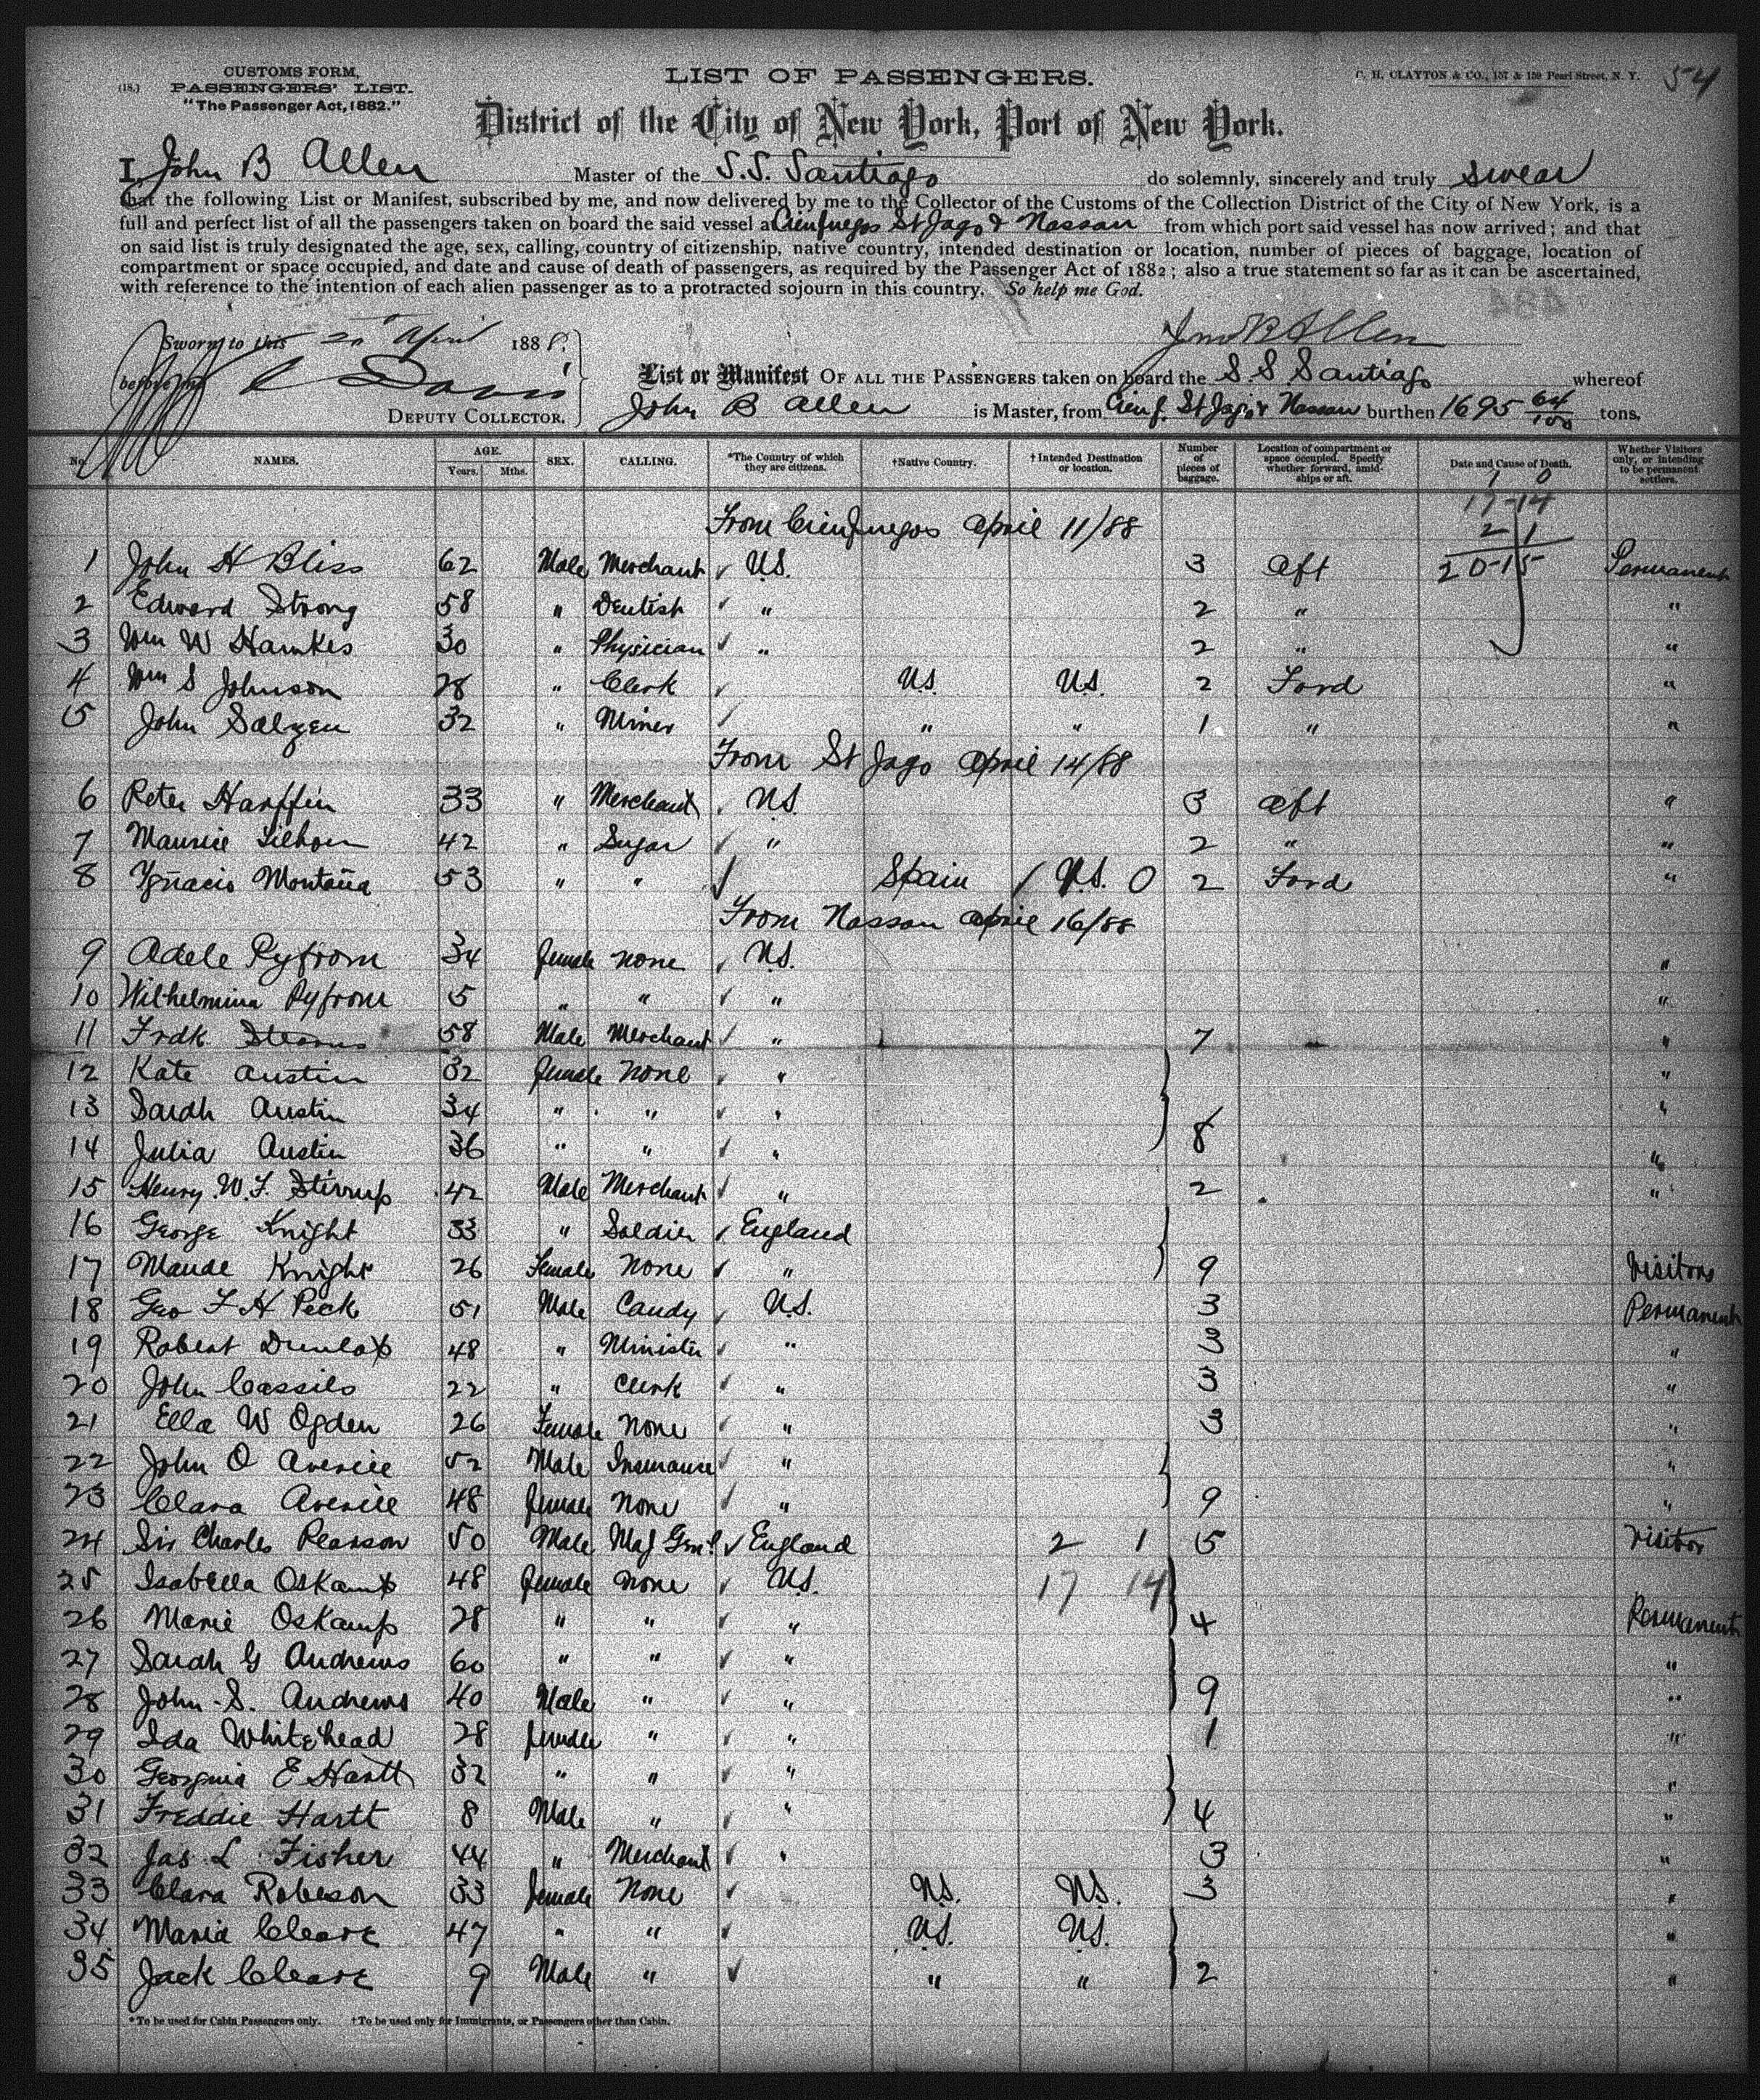 54
CUSTOMS FORM,
(18.) PASSENGERS' LIST.
"The Passenger Act, 1882."
LIST OF PASSENGERS.
C. H. CLAYTON & CO., 157 & 159 Pearl Street, N. Y.
District of the City of New York, Port of New York.
I, John B Allen Master of the S.S. Santiago do solemnly, sincerely and truly swear
that the following List or Manifest, subscribed by me, and now delivered by me to the Collector of the Customs of the Collection District of the City of New York, is a
full and perfect list of all the passengers taken on board the said vessel at Cienfuegos St Jago & Nassau from which port said vessel has now arrived; and that
on said list is truly designated the age, sex, calling, country of citizenship, native country, intended destination or location, number of pieces of baggage, location of
compartment or space occupied, and date and cause of death of passengers, as required by the Passenger Act of 1882; also a true statement so far as it can be ascertained,
with reference to the intention of each alien passenger as to a protracted sojourn in this country. So help me God.
Jno B Allen
Sworn to this 20 April 1888.
before me Davis
DEPUTY COLLECTOR.
List or Manifest OF ALL THE PASSENGERS taken on board the S.S. Santiago whereof
John B Allen is Master, from Cienf. St Jago & Nassau burthen 1695 64/100 tons.
No. NAMES. AGE. Years. Mths. SEX. CALLING. *The Country of which they are citizens. †Native Country. †Intended Destination or location. Number of pieces of baggage. Location of compartment or space occupied. Specify whether forward, amidships or aft. Date and Cause of Death. Whether Visitors only, or intending to be permanent settlers.
1 0
17-14
From Cienfuegos April 11/88
2 1
1 John H Bliss 62 Male Merchant ✓ U.S. 3 aft 20-15 Permanent
2 Edward Strong 58 " Dentist ✓ " 2 " "
3 Wm W Hawkes 30 " Physician ✓ " 2 " "
4 Wm S Johnson 28 " Clerk ✓ U.S. U.S. 2 Ford "
5 John Salzen 32 " Miner ✓ " " 1 " "
From St Jago April 14/88
6 Peter Harffin 33 " Merchant ✓ U.S. 3 aft "
7 Maurice 42 " Sugar ✓ " 2 " "
8 Ygnacio Montaña 53 " " ✓ Spain / U.S. 0 2 Ford "
From Nassau April 16/88
9 Adele Pyfrom 34 female none ✓ U.S. "
10 Wilhelmina Pyfrom 5 " " ✓ " "
11 Frdk. Stearns 58 Male Merchant ✓ " 7 "
12 Kate Austin 32 female None ✓ " "
13 Sarah Austin 34 " " ✓ " "
14 Julia Austin 36 " " ✓ " 8 "
15 Henry W. F. Stirrup 42 Male Merchant ✓ " 2 "
16 George Knight 33 " Soldier ✓ England
17 Maude Knight 26 Female None ✓ " 9 Visitors
18 Geo F H Peck 51 Male Candy ✓ U.S. 3 Permanent
19 Robert Dunlap 48 " Minister ✓ " 3 "
20 John Cassils 22 " Clerk ✓ " 3 "
21 Ella W Ogden 26 Female None ✓ " 3 "
22 John O Averill 52 Male Insurance ✓ " "
23 Clara Averill 48 female None ✓ " 9 "
24 Sir Charles Pearson 50 Male Maj Genl ✓ England 2 1 5 Visitor
25 Isabella Oskamp 48 female None ✓ U.S. 17 14
26 Marie Oskamp 28 " " ✓ " 4 Permanent
27 Sarah G Andrews 60 " " ✓ " "
28 John S. Andrews 40 Male " ✓ " 9 "
29 Ida Whitehead 28 female " ✓ " 1 "
30 Georgina E Hartt 32 " " ✓ " "
31 Freddie Hartt 8 Male " ✓ " 4 "
32 Jas L Fisher 44 " Merchant ✓ " 3 "
33 Clara Roberson 33 female None ✓ U.S. U.S. 3 "
34 Maria Cleare 47 " " ✓ U.S. U.S. "
35 Jack Cleare 9 Male " ✓ " " 2 "
*To be used for Cabin Passengers only. †To be used only for Immigrants, or Passengers other than Cabin.